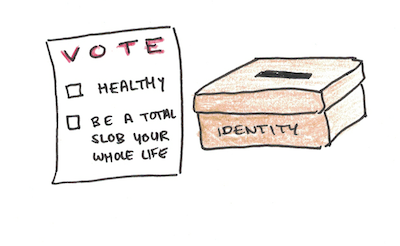 VOTE
HEALTHY
BE A TOTAL
SLOB YOUR
WHOLE LIFE
IDENTITY